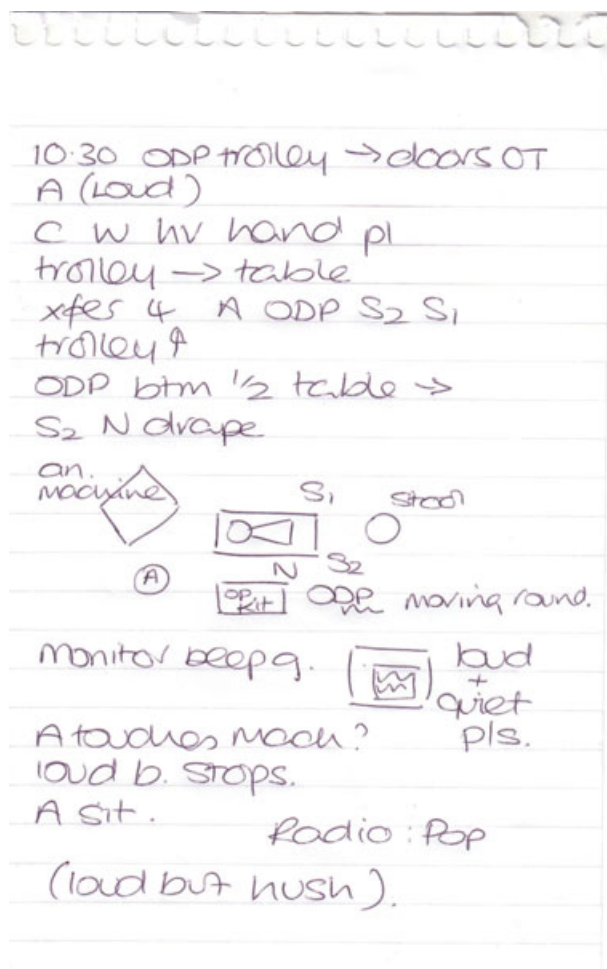 10.30 ODP trolley → doors OT
A (Loud)
C W hv hand pl
trolley → table
xfers 4 A ODP S2 S1
trolley ↑
ODP btm 1/2 table →
S2 N drape
an.
machine
S1 stool
N S2
A
op kit ODP moving round.
monitor beepg. loud
+
quiet
A touches mach? pls.
loud b. stops.
A sit.
Radio: Pop
(loud but hush).